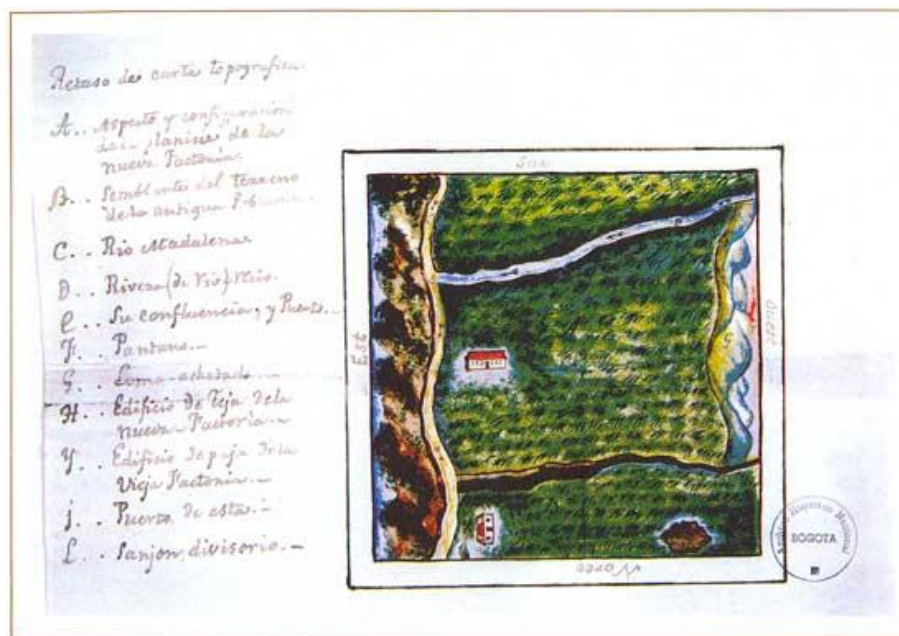 Retaso de carta topografica.
A.. Aspecto y configuracion
planisie de la
nueva Factoria.
B.. Semblantes del terreno
de la antigua
C.. Rio Madalena
D.. Rivera (de Rio)
E.. Su confluencia, y Puerto..
F.. Pantano.-
G.. Loma
H.. Edificio de Teja de la
nueva Factoria.-
Y.. Edificio de paja de la
Vieja Factoria.-
j.. Puerto de esta.-
L.. Sanjon, divisorio.-
Sur
Est
Oueste
Norte
Archivo Nacional
BOGOTA